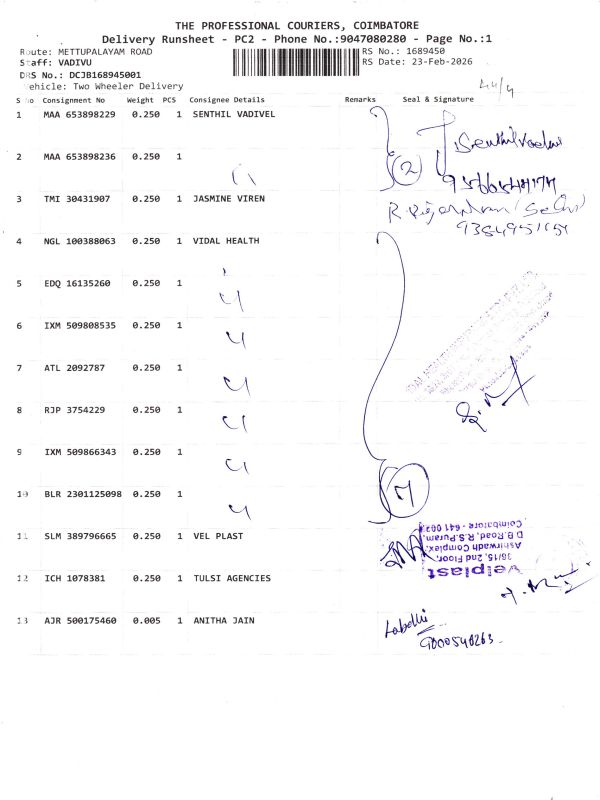 THE PROFESSIONAL COURIERS, COIMBATORE
Delivery Runsheet - PC2 - Phone No.:9047080280 - Page No.:1
Route: METTUPALAYAM ROAD
RS No.: 1689450
Staff: VADIVU
RS Date: 23-Feb-2026
DRS No.: DCJB168945001
Vehicle: Two Wheeler Delivery
S No Consignment No Weight PCS Consignee Details Remarks Seal & Signature
1 MAA 653898229 0.250 1 SENTHIL VADIVEL
Senthil Vadivel
2 MAA 653898236 0.250 1
2
3 TMI 30431907 0.250 1 JASMINE VIREN
4 NGL 100388063 0.250 1 VIDAL HEALTH
5 EDQ 16135260 0.250 1
6 IXM 509808535 0.250 1
7 ATL 2092787 0.250 1
8 RJP 3754229 0.250 1
9 IXM 509866343 0.250 1
10 BLR 2301125098 0.250 1
7
11 SLM 389796665 0.250 1 VEL PLAST
velplast
36/15, 2nd Floor,
Ashirwadh Complex,
D.B.Road, R.S.Puram,
Coimbatore - 641 002
12 ICH 1078381 0.250 1 TULSI AGENCIES
13 AJR 500175460 0.005 1 ANITHA JAIN
Labdhi
9000540263